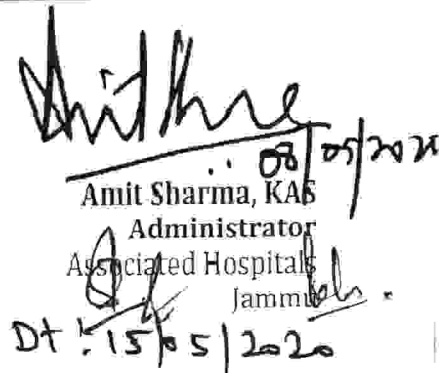 08/05/2020
Amit Sharma, KAS
Administrator
Associated Hospitals
Jammu
Dt: 15/05/2020